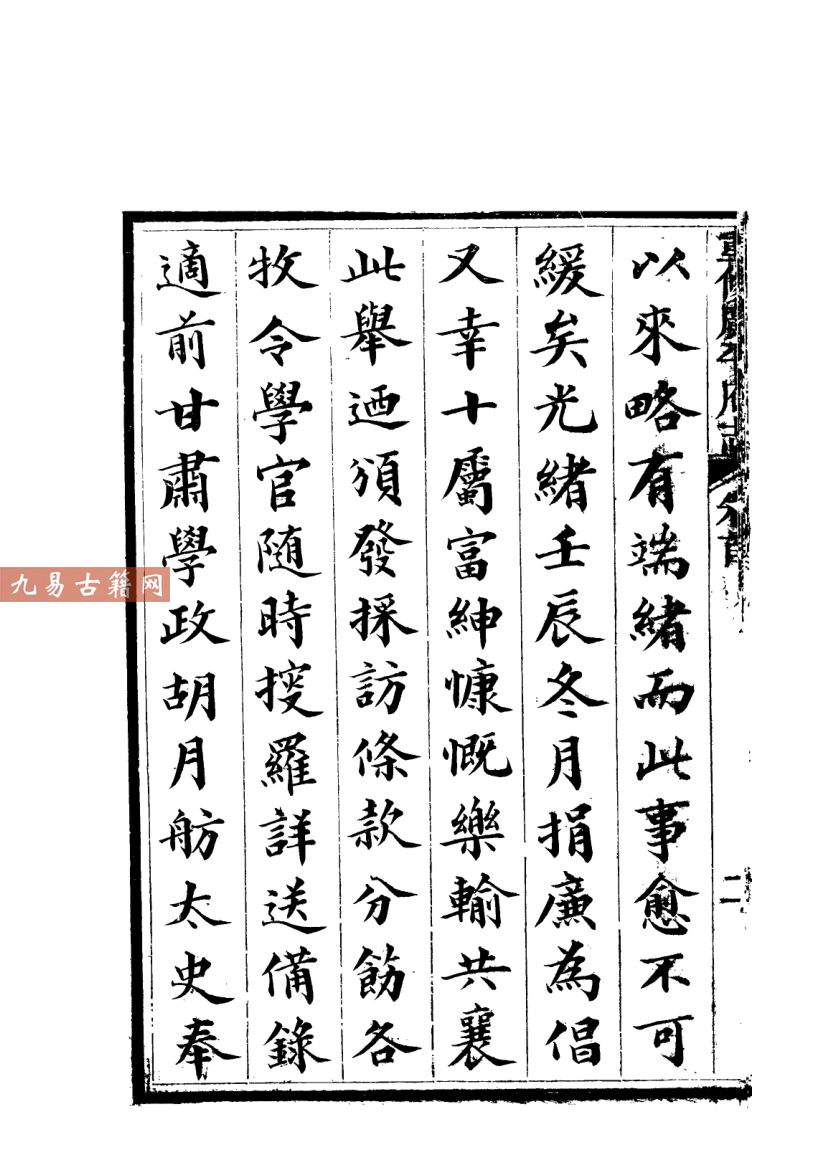 重修廣平府志 卷首 二
以來略有端緒而此事愈不可
緩矣光緒壬辰冬月捐廉為倡
又幸十屬富紳慷慨樂輸共襄
此舉迺頒發採訪條款分飭各
牧令學官隨時搜羅詳送備錄
適前甘肅學政胡月舫太史奉
九易古籍网